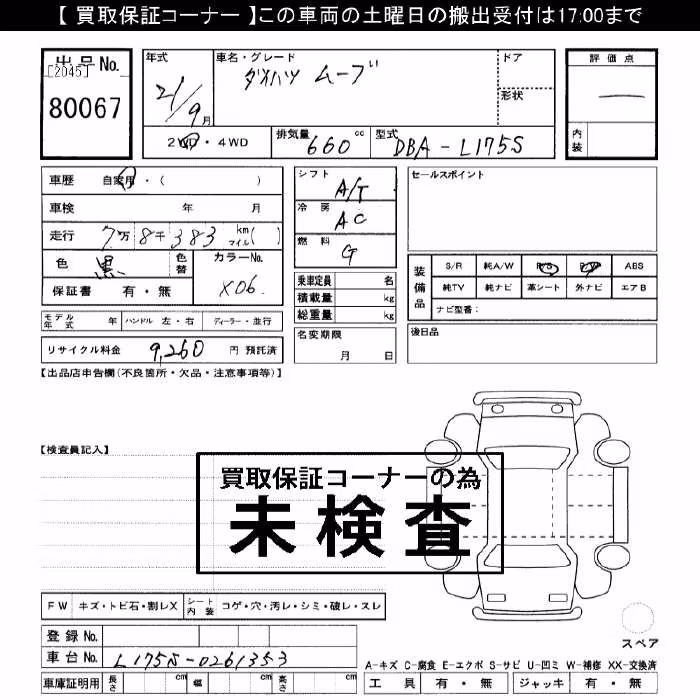 【 買取保証コーナー 】この車両の土曜日の搬出受付は17:00まで
出品No. [2045]
80067
年式 21/9月
車名・グレード ダイハツ ムーブ
ドア
形状
2WD・4WD
排気量 660 cc
型式 DBA-L175S
評価点 —
内装
車歴 自家用・( )
車検 年 月
走行 7万8千383 km マイル( )
色 黒
色替
カラーNo. X06
保証書 有・無
シフト A/T
冷房 AC
燃料 G
乗車定員 名
積載量 kg
総重量 kg
セールスポイント
装備品
S/R 純A/W P/S P/W ABS
純TV 純ナビ 革シート 外ナビ エアB
ナビ型番:
モデル年式 年 ハンドル 左・右 ディーラー・並行
リサイクル料金 9,260 円 預託済
名変期限 月 日
後日品
【出品店申告欄(不良箇所・欠品・注意事項等)】
【検査員記入】
買取保証コーナーの為
未検査
FW キズ・トビ石・割レX シート内装 コゲ・穴・汚レ・シミ・破レ・スレ
登録No.
車台No. L175S-0261353
車庫証明用 長さ 幅 高さ
スペア
A-キズ C-腐食 E-エクボ S-サビ U-凹ミ W-補修 XX-交換済
工具 有・無 ジャッキ 有・無